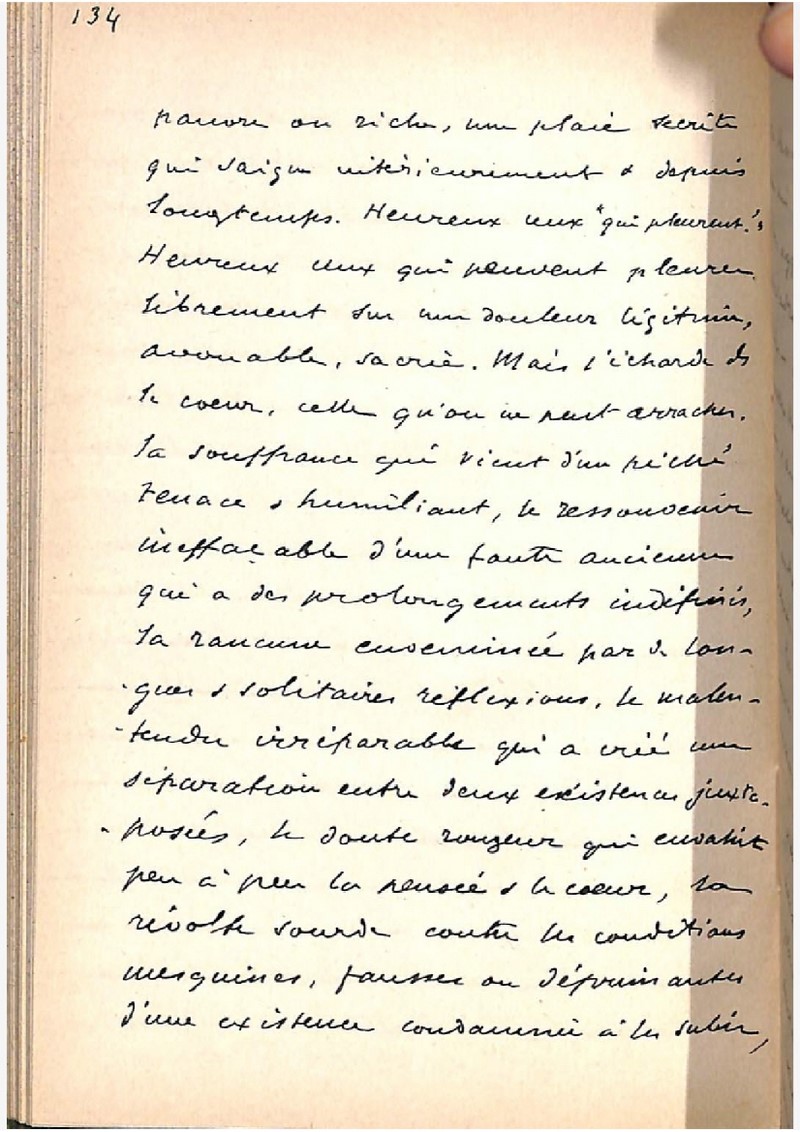 134
pauvre ou riche, une plaie secrète
qui saigne intérieurement & depuis
longtemps. Heureux ceux "qui pleurent."
Heureux ceux qui peuvent pleurer
librement sur une douleur légitime,
avouable, sacrée. Mais l'écharde ds
le coeur, celle qu'on ne peut arracher.
la souffrance qui vient d'un péché
tenace & humiliant, le ressouvenir
ineffaçable d'une faute ancienne
qui a des prolongements indéfinis,
la rancune envenimée par de lon-
gues & solitaires réflexions, le malen-
tendu irréparable qui a créé une
séparation entre deux existences juxta-
posées, le doute rongeur qui envahit
peu à peu la pensée & le coeur, la
révolte sourde contre les conditions
mesquines, fausses ou déprimantes
d'une existence condamnée à les subir,